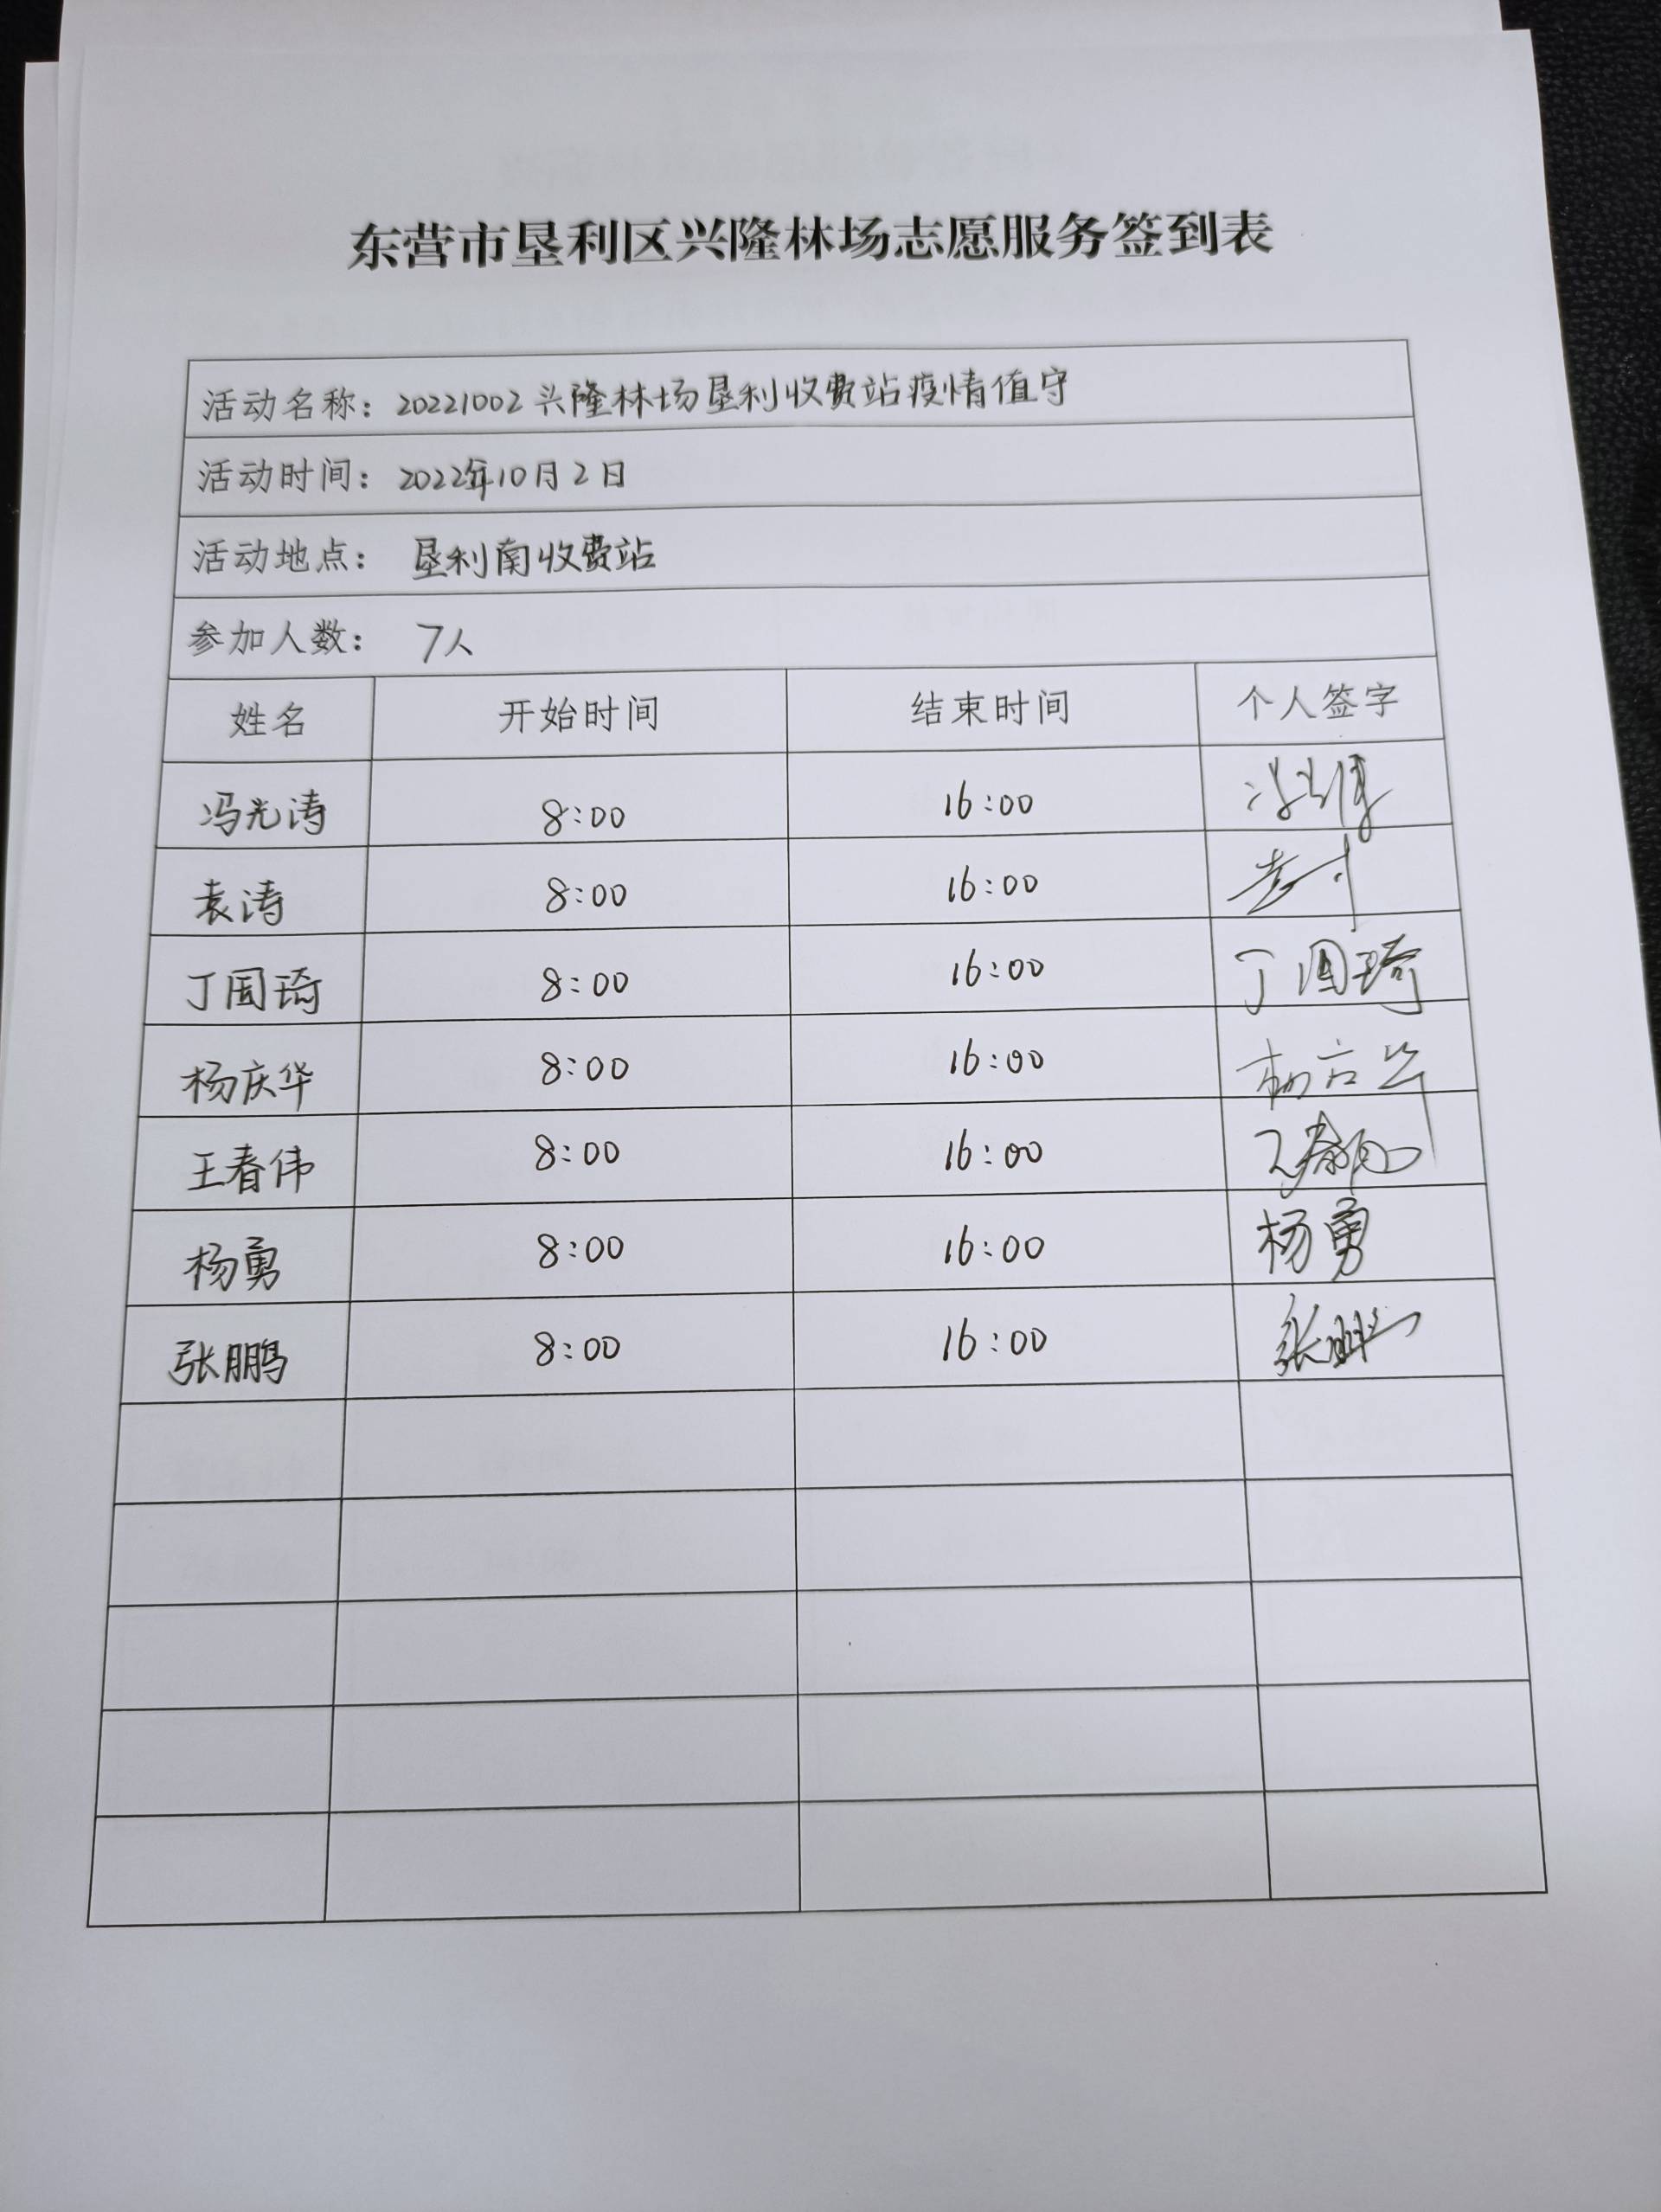 东营市垦利区兴隆林场志愿服务签到表
活动名称：20221002兴隆林场垦利收费站疫情值守
活动时间：2022年10月2日
活动地点：垦利南收费站
参加人数：7人
姓名 开始时间 结束时间 个人签字
冯光涛 8:00 16:00
袁涛 8:00 16:00
丁国琦 8:00 16:00 丁国琦
杨庆华 8:00 16:00
王春伟 8:00 16:00
杨勇 8:00 16:00 杨勇
张鹏 8:00 16:00